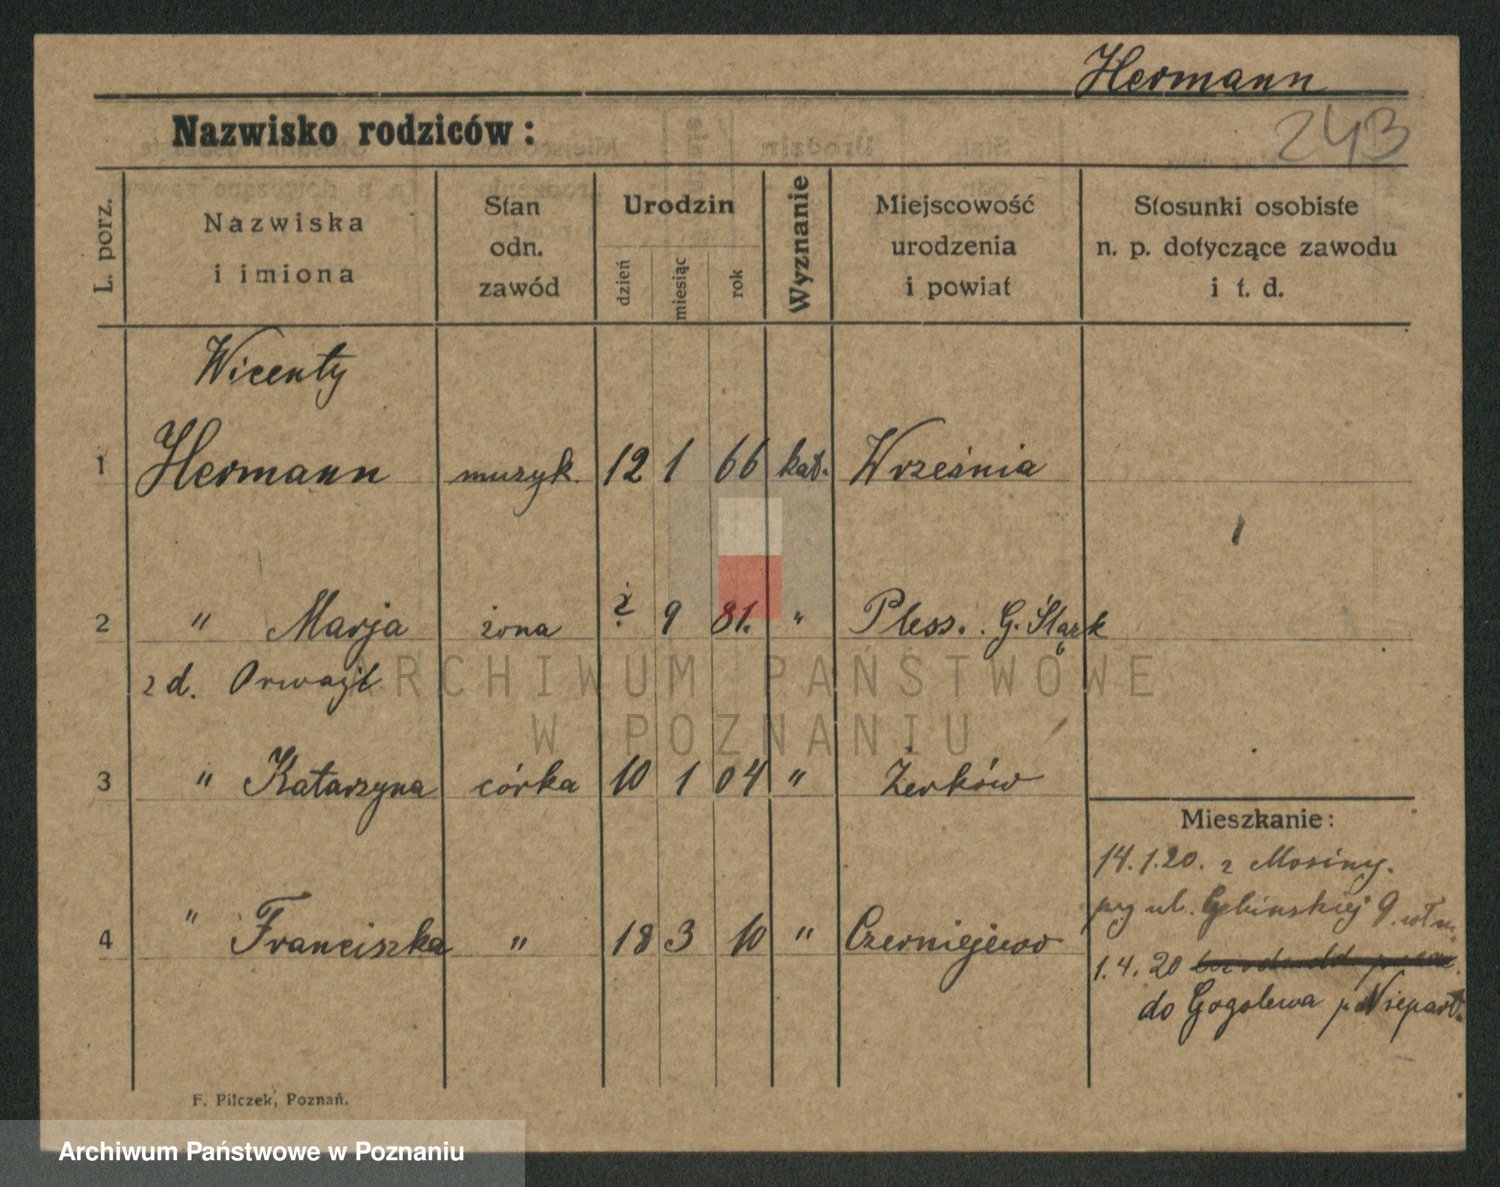 Hermann
243
Nazwisko rodziców:
L. porz.
Nazwiska
i imiona
Stan
odn.
zawód
Urodzin
dzień
miesiąc
rok
Wyznanie
Miejscowość
urodzenia
i powiat
Stosunki osobiste
n. p. dotyczące zawodu
i t. d.
Wicenty
1 Hermann muzyk. 12 1 66 kat. Września
2 " Marja żona ? 9 81. " Pless. G. Śląsk
z d.
3 " Katarzyna córka 10 1 04 " Żerków
4 " Franciszka " 18 3 10 " Czerniejewo
Mieszkanie:
14.1.20. z Mosiny.
ul. 9.
1.4.20
do Gogolewa p. Niepart.
F. Pilczek, Poznań.
ARCHIWUM PAŃSTWOWE
W POZNANIU
Archiwum Państwowe w Poznaniu